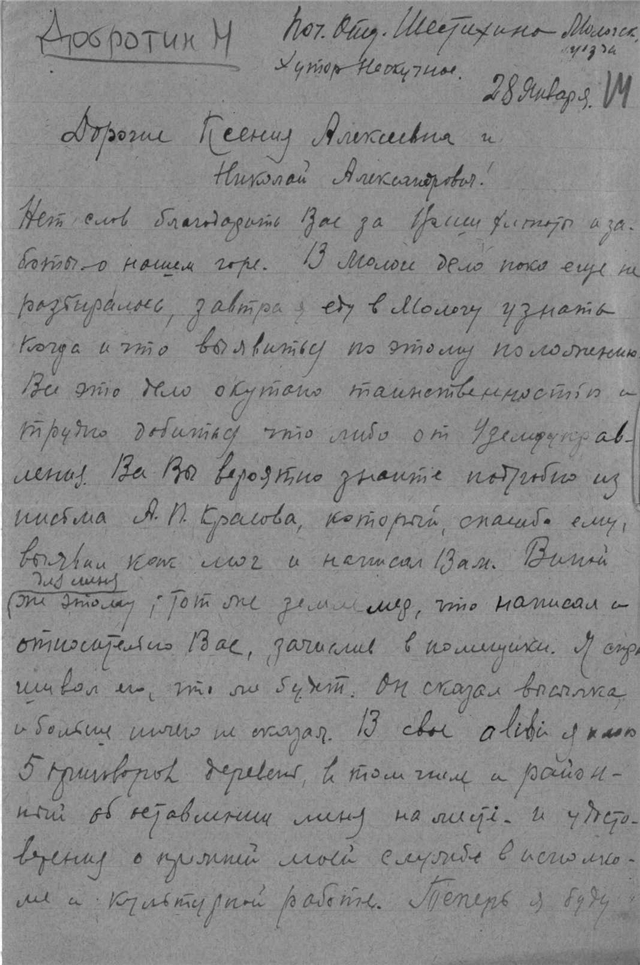 Добротин Н
Поч. Отд. Шестихино Мологск.
уезда
Хутор Нескучное.
28 Января. VI
Дорогие Ксения Алексеевна и
Николай Александрович!
Нет слов благодарить Вас за Ваши хлопоты и за-
боты о нашем горе. В Мологе дело пока еще не
разбиралось, завтра я еду в Мологу узнать
когда и что выявиться по этому положению
Все это дело окутано таинственностью и
трудно добиться что либо от Уземуправ-
ления. Вы вероятно знаете подробно из
письма А. П. Красова, который, спасибо ему,
выявил как мог и написал Вам. Виной
для меня
же этому, тот же землемер, что написал и
относительно Вас, зачислив в помещики. Я спра
шивал его, что же будет. Он сказал высылка
и больше ничего не сказал. В свое alibi я имею
5 приговоров деревень, в том числе и район-
ный об оставлении меня на месте. и удосто-
верения о прежней моей службе в исполко-
ме и культурной работе. Теперь я буду